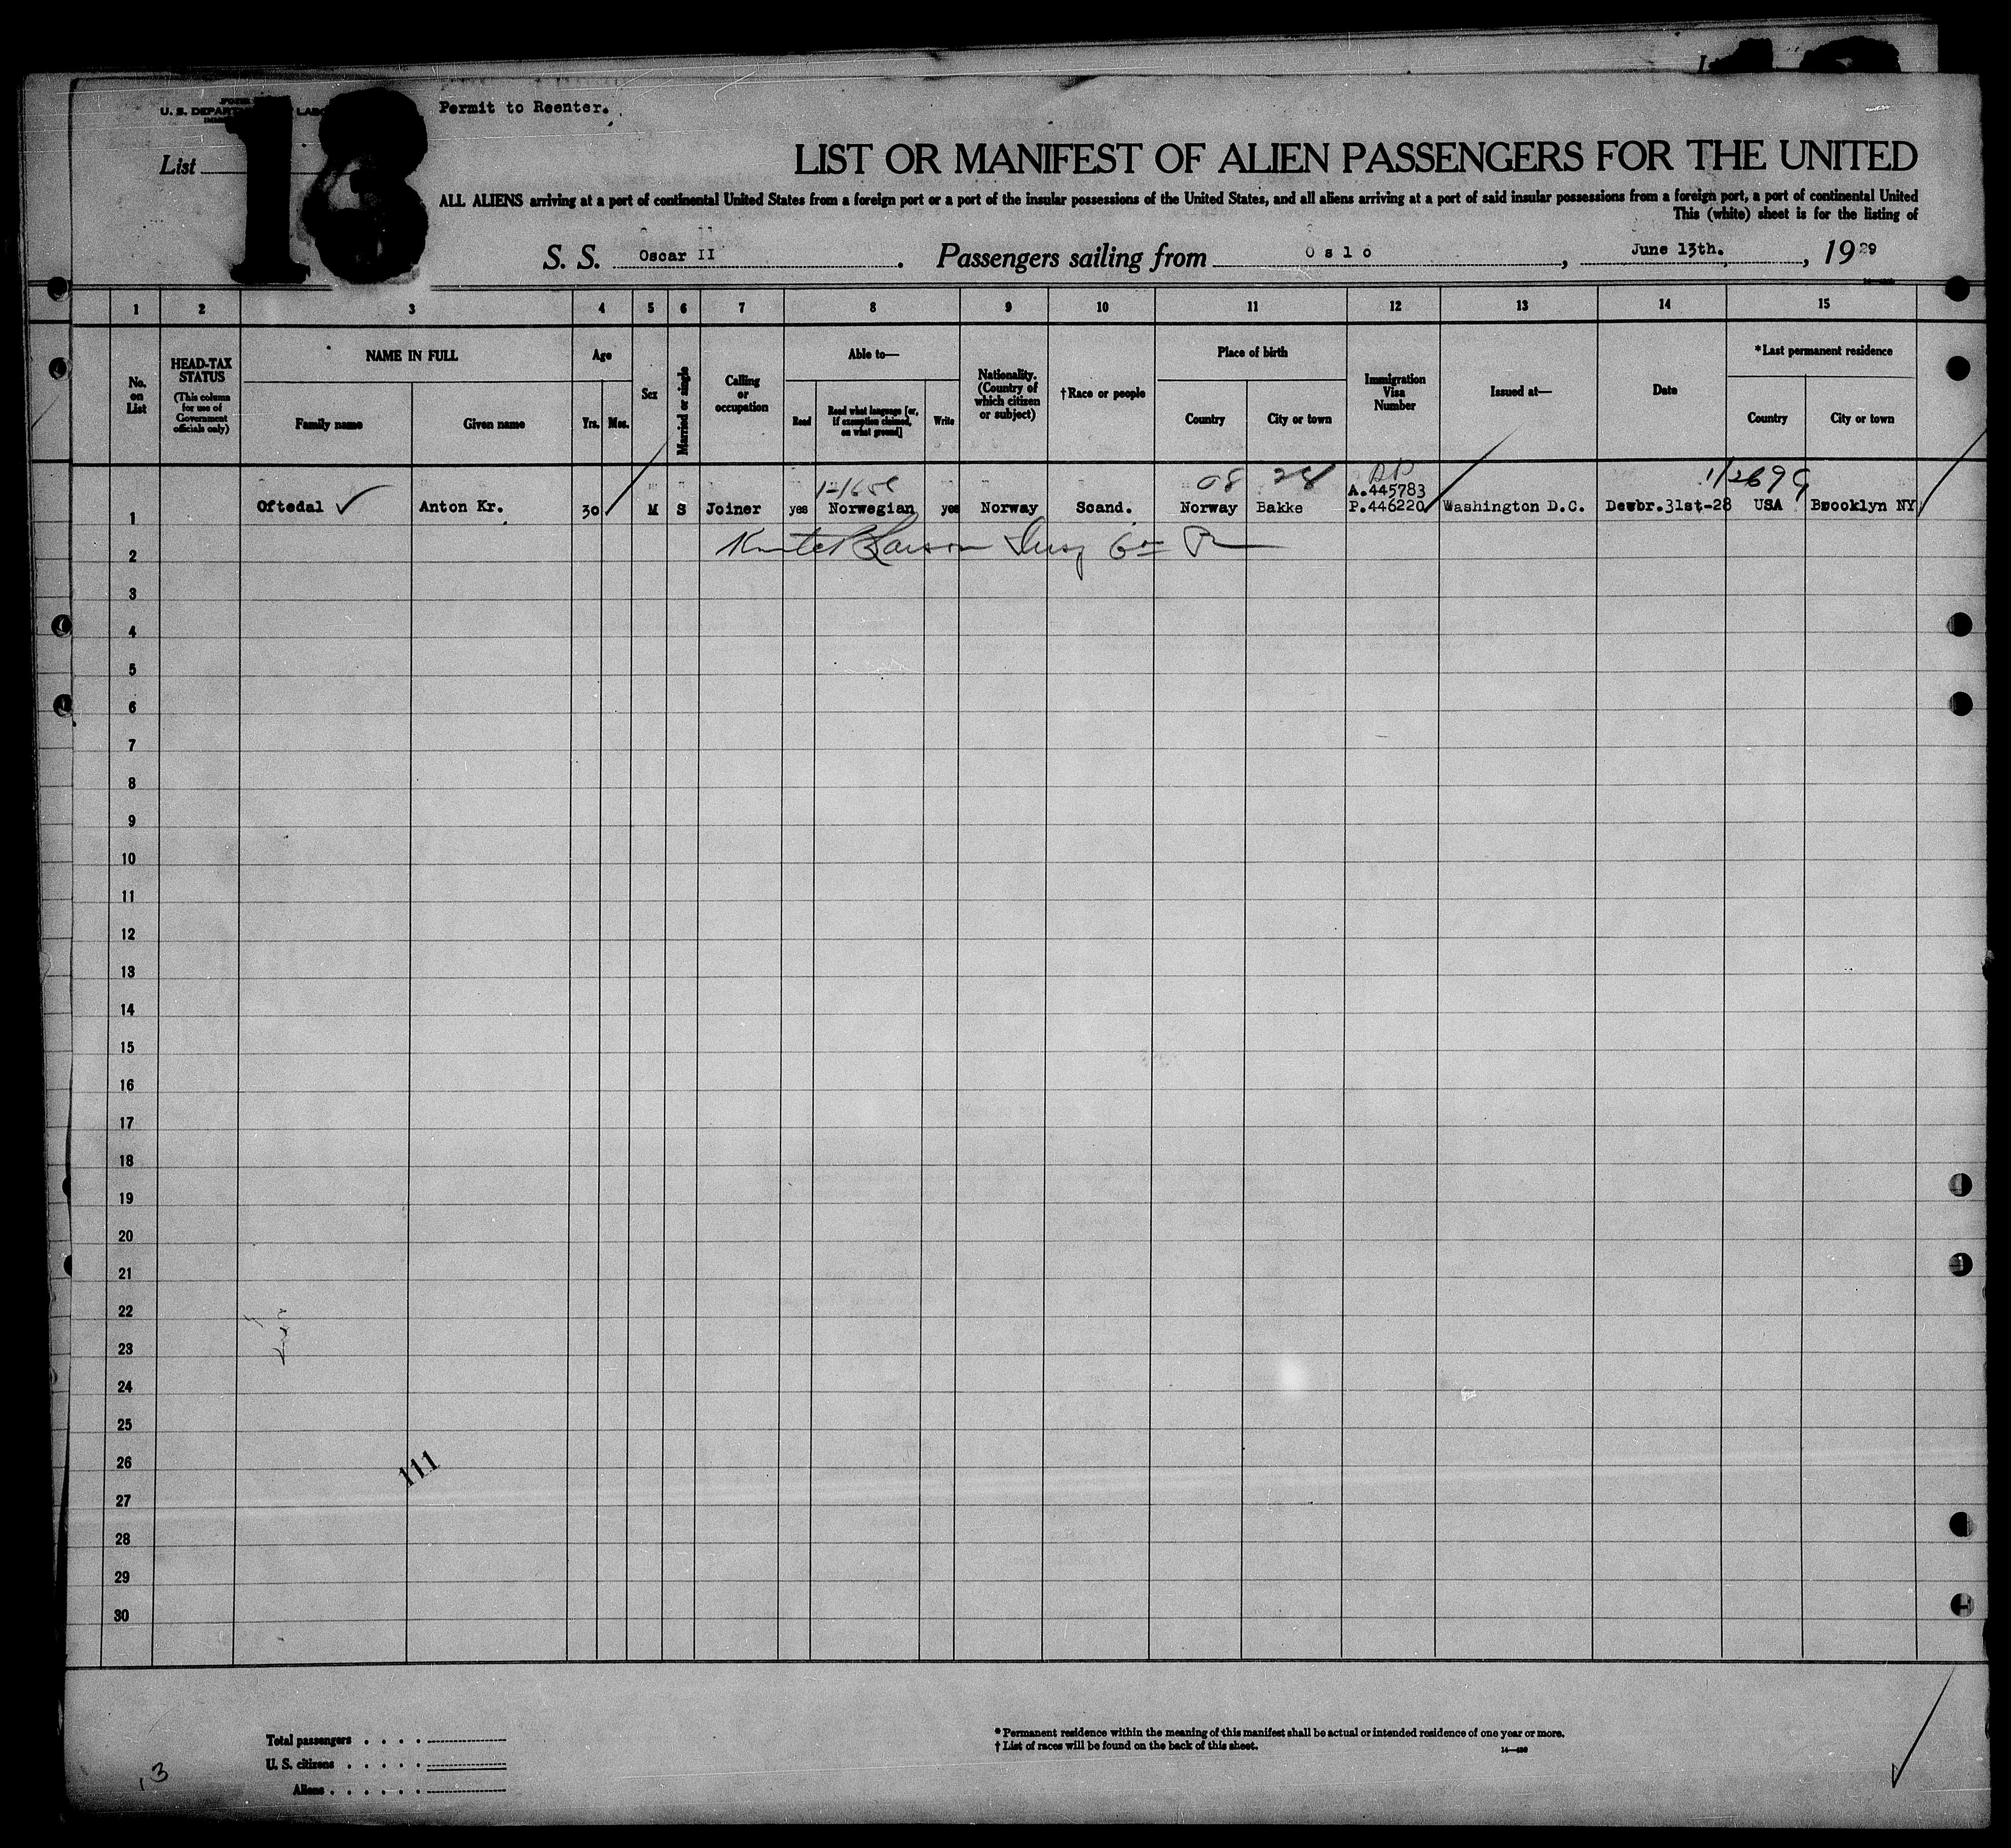 Permit to Reenter.
U. S. DEPAR LABO
List 13
LIST OR MANIFEST OF ALIEN PASSENGERS FOR THE UNITED
ALL ALIENS arriving at a port of continental United States from a foreign port or a port of the insular possessions of the United States, and all aliens arriving at a port of said insular possessions from a foreign port, a port of continental United
This (white) sheet is for the listing of
S. S. Oscar II. Passengers sailing from Oslo, June 13th., 1929
1 2 3 4 5 6 7 8 9 10 11 12 13 14 15
No. on List
HEAD-TAX STATUS
(This column for use of Government officials only)
NAME IN FULL
Family name Given name
Age
Yrs. Mos.
Sex
Married or single
Calling or occupation
Able to—
Read
Read what language [or, if exemption claimed, on what ground]
Write
Nationality. (Country of which citizen or subject)
†Race or people
Place of birth
Country City or town
Immigration Visa Number
Issued at—
Date
*Last permanent residence
Country City or town
08 28
A.445783
1 Oftedal Anton Kr. 30 M S Joiner yes Norwegian yes Norway Scand. Norway Bakke P.446220 Washington D.C. Dewbr.31st-28 USA Brooklyn NY
2
3
4
5
6
7
8
9
10
11
12
13
14
15
16
17
18
19
20
21
22
23
24
25
26
111
27
28
29
30
Total passengers
U. S. citizens
Aliens
* Permanent residence within the meaning of this manifest shall be actual or intended residence of one year or more.
† List of races will be found on the back of this sheet.
13